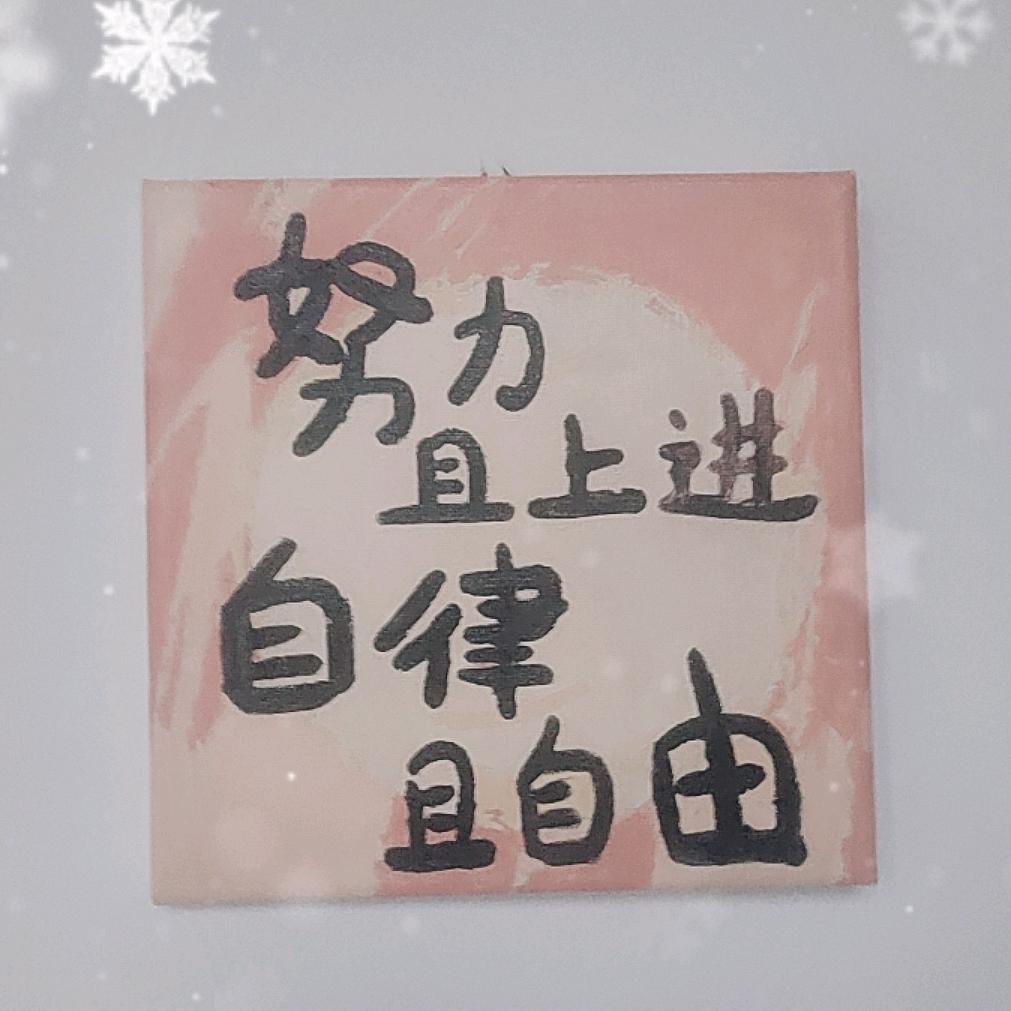 努力
且上进
自律
且自由